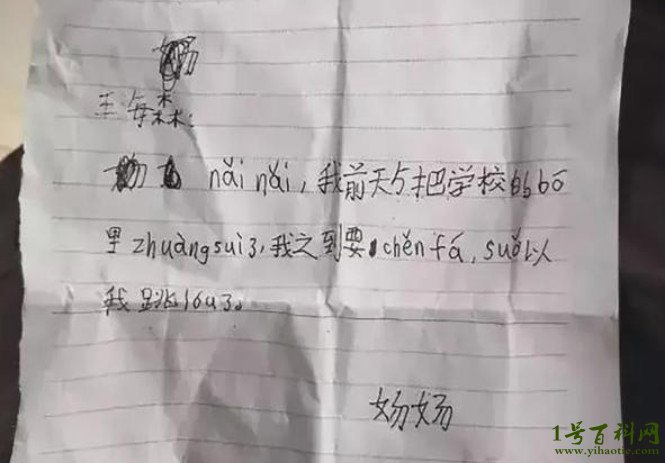 王海森:
nǎi nǎi,我前天 把学校的bō
里zhuàngsuì3,我之到要chěnfá,suǒ以
我跳lóu3。
妫妫
1号百科网
www.yihaotie.com